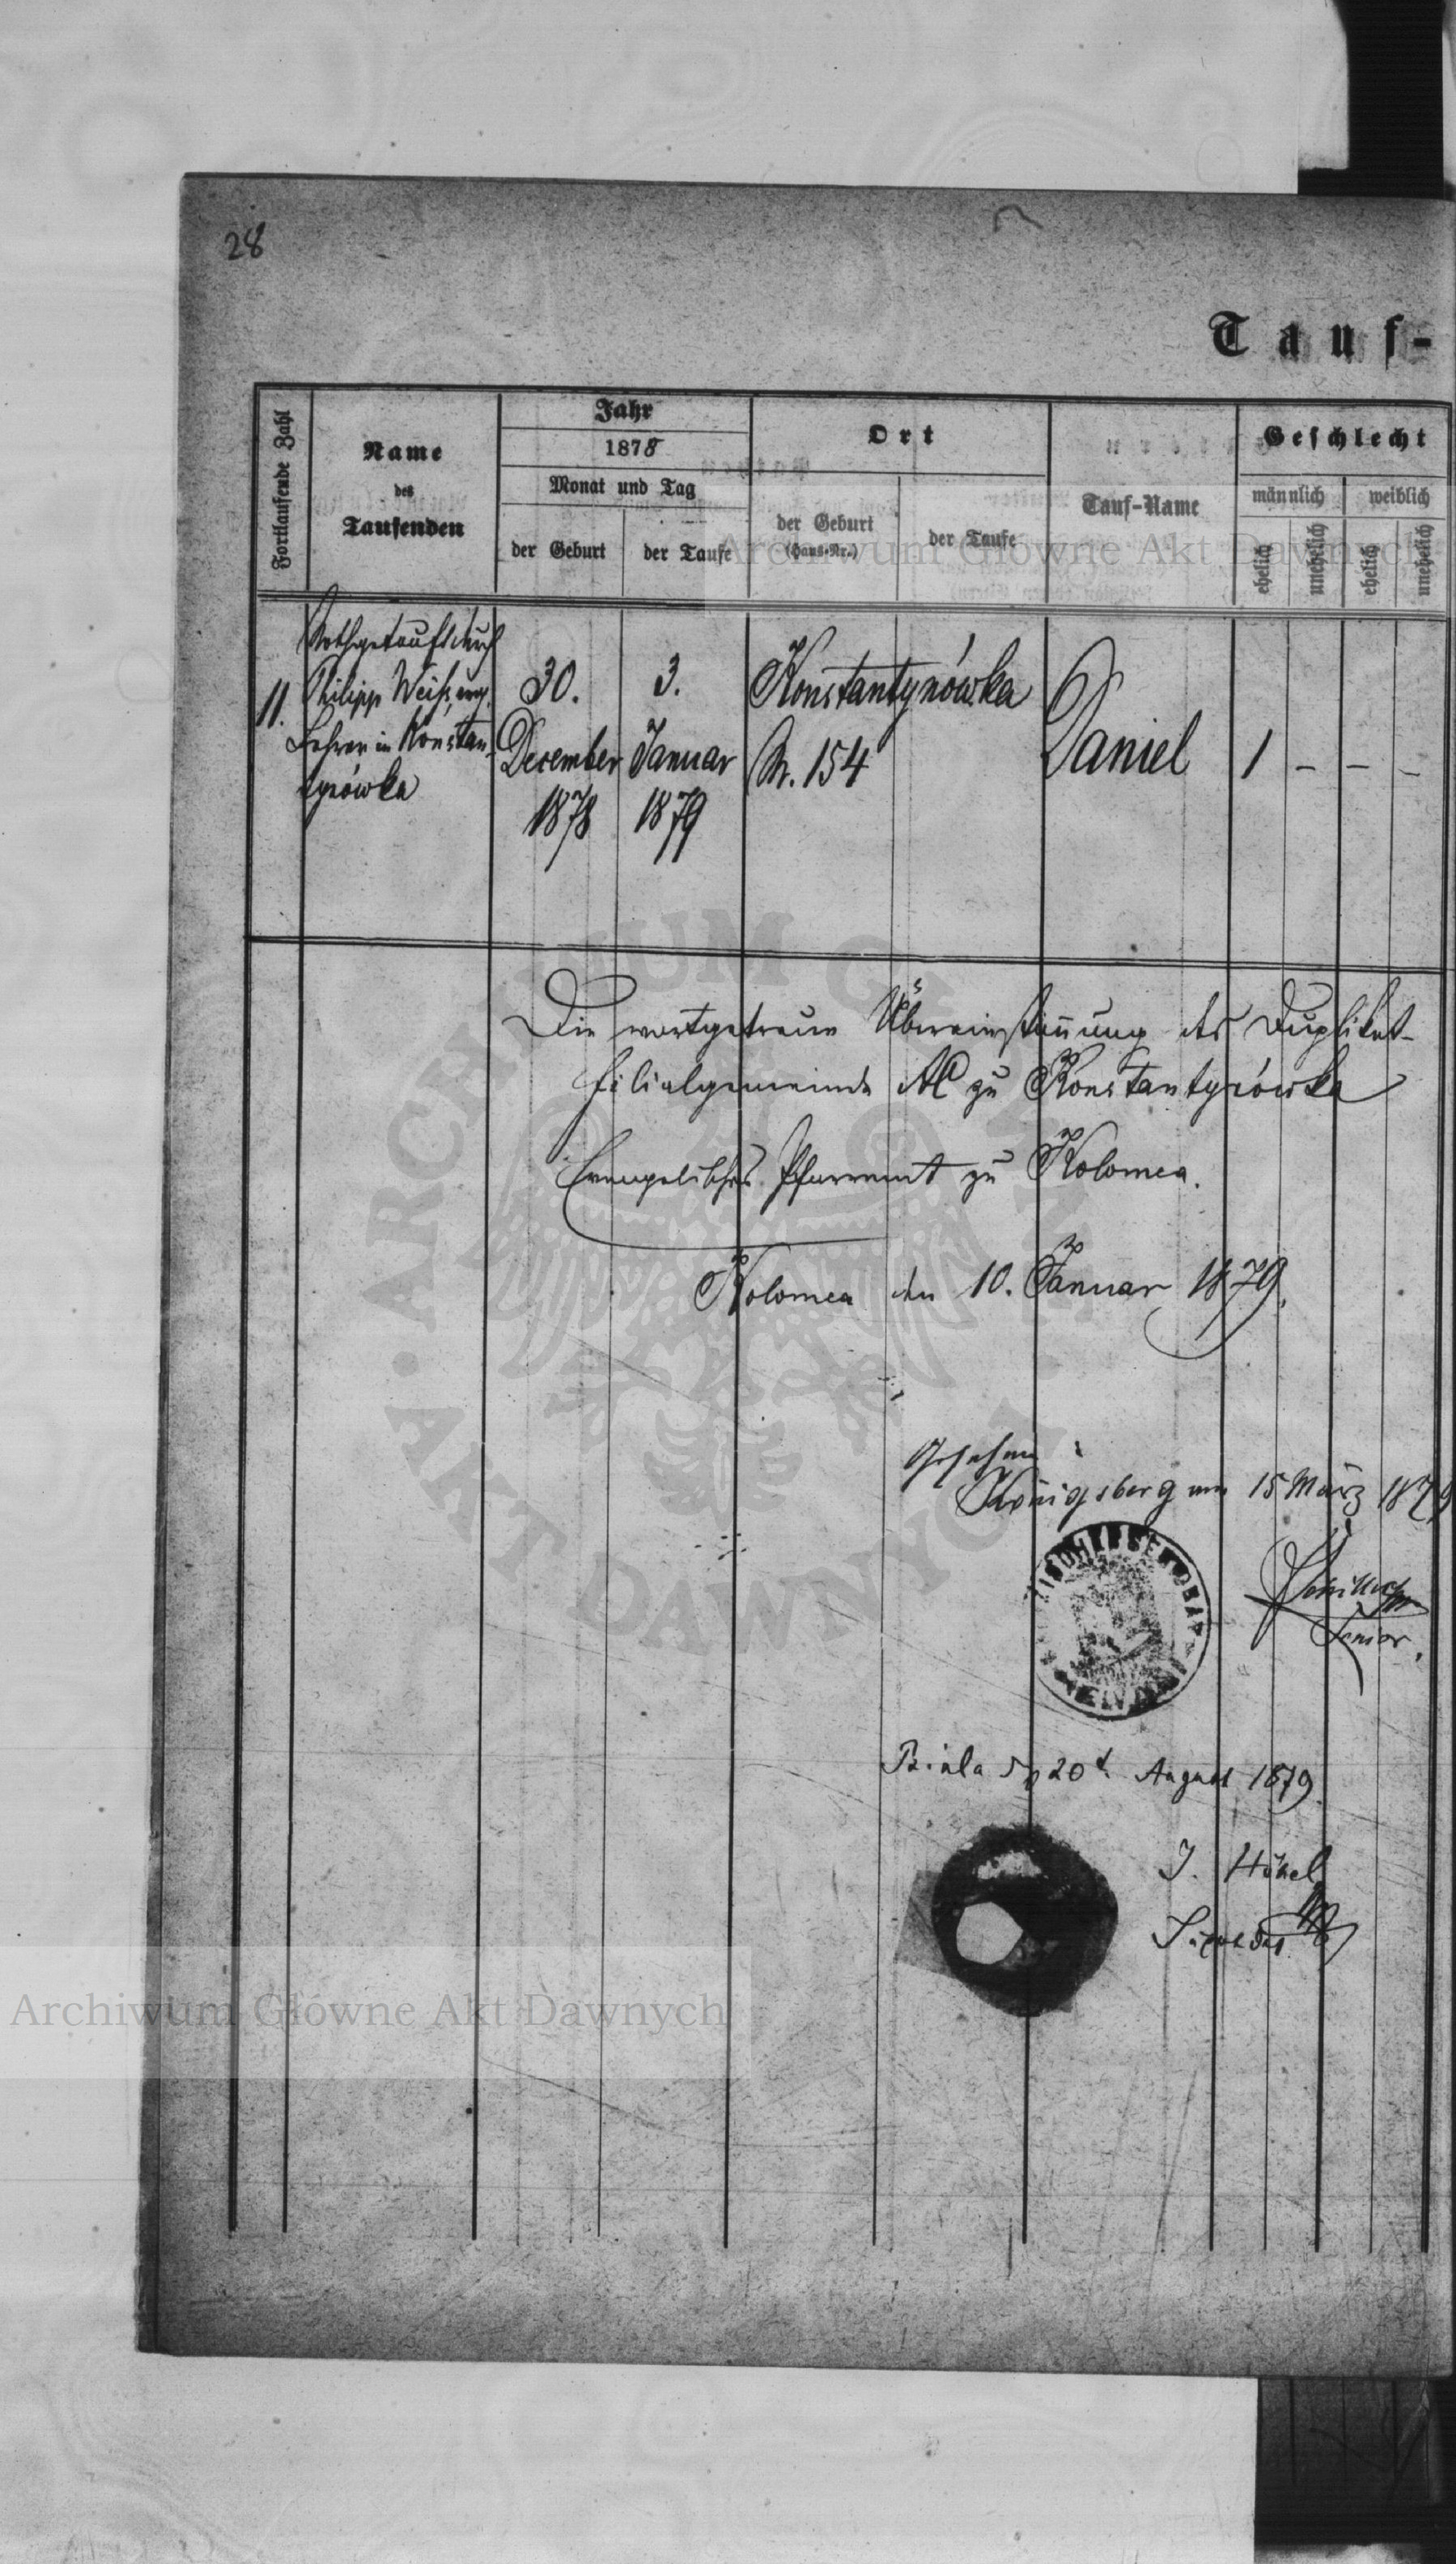 28
Tauf-
Fortlaufende Zahl
Name
des
Taufenden
Jahr
1878
Monat und Tag
der Geburt
der Taufe
Ort
der Geburt
(Haus-Nr.)
der Taufe
Tauf-Name
Geschlecht
männlich
weiblich
ehelich
unehelich
ehelich
unehelich
11.
Nothgetauft durch
Philipp Weiß, evg.
Lehrer in Konstan-
tynówka
30.
December
1878
3.
Januar
1879
Konstantynówka
Nr. 154
Daniel
1 – – –
Die wortgetreue Übereinstimmung des Duplikat-
filialgemeinde AC zu Konstantynówka
Evangelisches Pfarramt zu Kolomea.
Kolomea den 10. Januar 1879.
Gesehen
Königsberg am 15 März 1879
Senior.
Biala 20t August 1879.
J. Hönel
Archiwum Główne Akt Dawnych
Archiwum Główne Akt Dawnych
ARCHIWUM GŁÓWNE AKT DAWNYCH